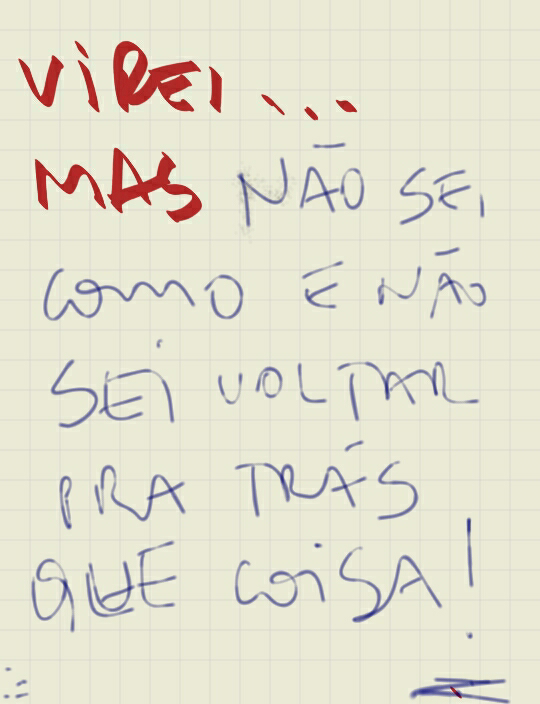 VIREI...
MAS NÃO SEI
COMO E NÃO
SEI VOLTAR
PRA TRÁS
QUE COISA!